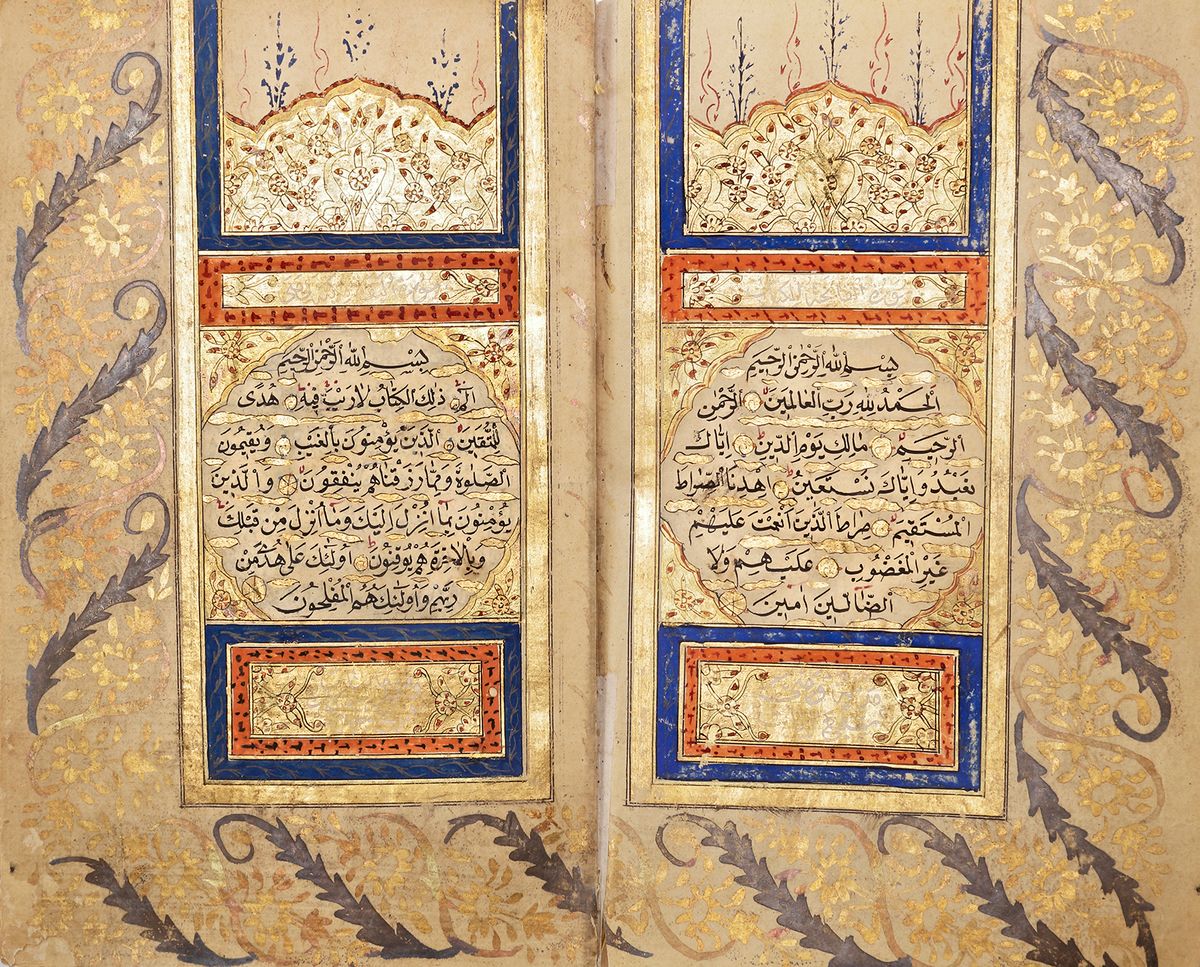 بسم الله الرحمن الرحيم
الحمد لله رب العالمين الرحمن
الرحيم مالك يوم الدين اياك
نعبد واياك نستعين اهدنا الصراط
المستقيم صراط الذين انعمت عليهم
غير المغضوب عليهم ولا
الضالين امين
بسم الله الرحمن الرحيم
الم ذلك الكتاب لا ريب فيه هدى
للمتقين الذين يؤمنون بالغيب ويقيمون
الصلوة ومما رزقناهم ينفقون والذين
يؤمنون بما انزل اليك وما انزل من قبلك
وبالاخرة هم يوقنون اولئك على هدى من
ربهم واولئك هم المفلحون